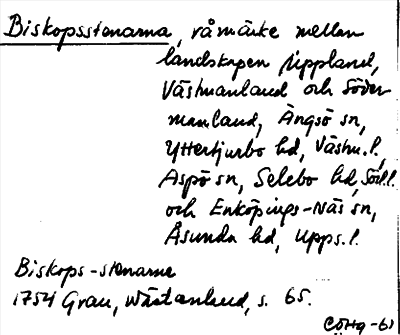 Biskopsstenarna, råmärke mellan
landskapen Uppland,
Västmanland och Söder
manland, Ängsö sn,
Yttertjurbo hd, Västm. l.,
Aspö sn, Selebo hd, Söd. l.
och Enköpings-Näs sn,
Åsunda hd, Upps. l.
Biskops-stenarne
1754 Grau, Wästanland, s. 65.
CÖHg-61